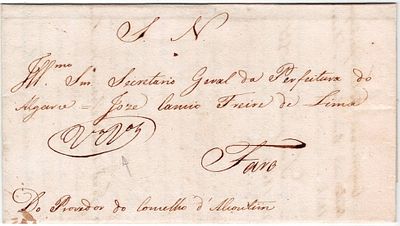 S. N.
Illmo Snr Secretario Geral da Perfeitura do
Algarve = Joze Camio Freire de Lima
Faro
Do Provedor do Concelho d'Alcoutim